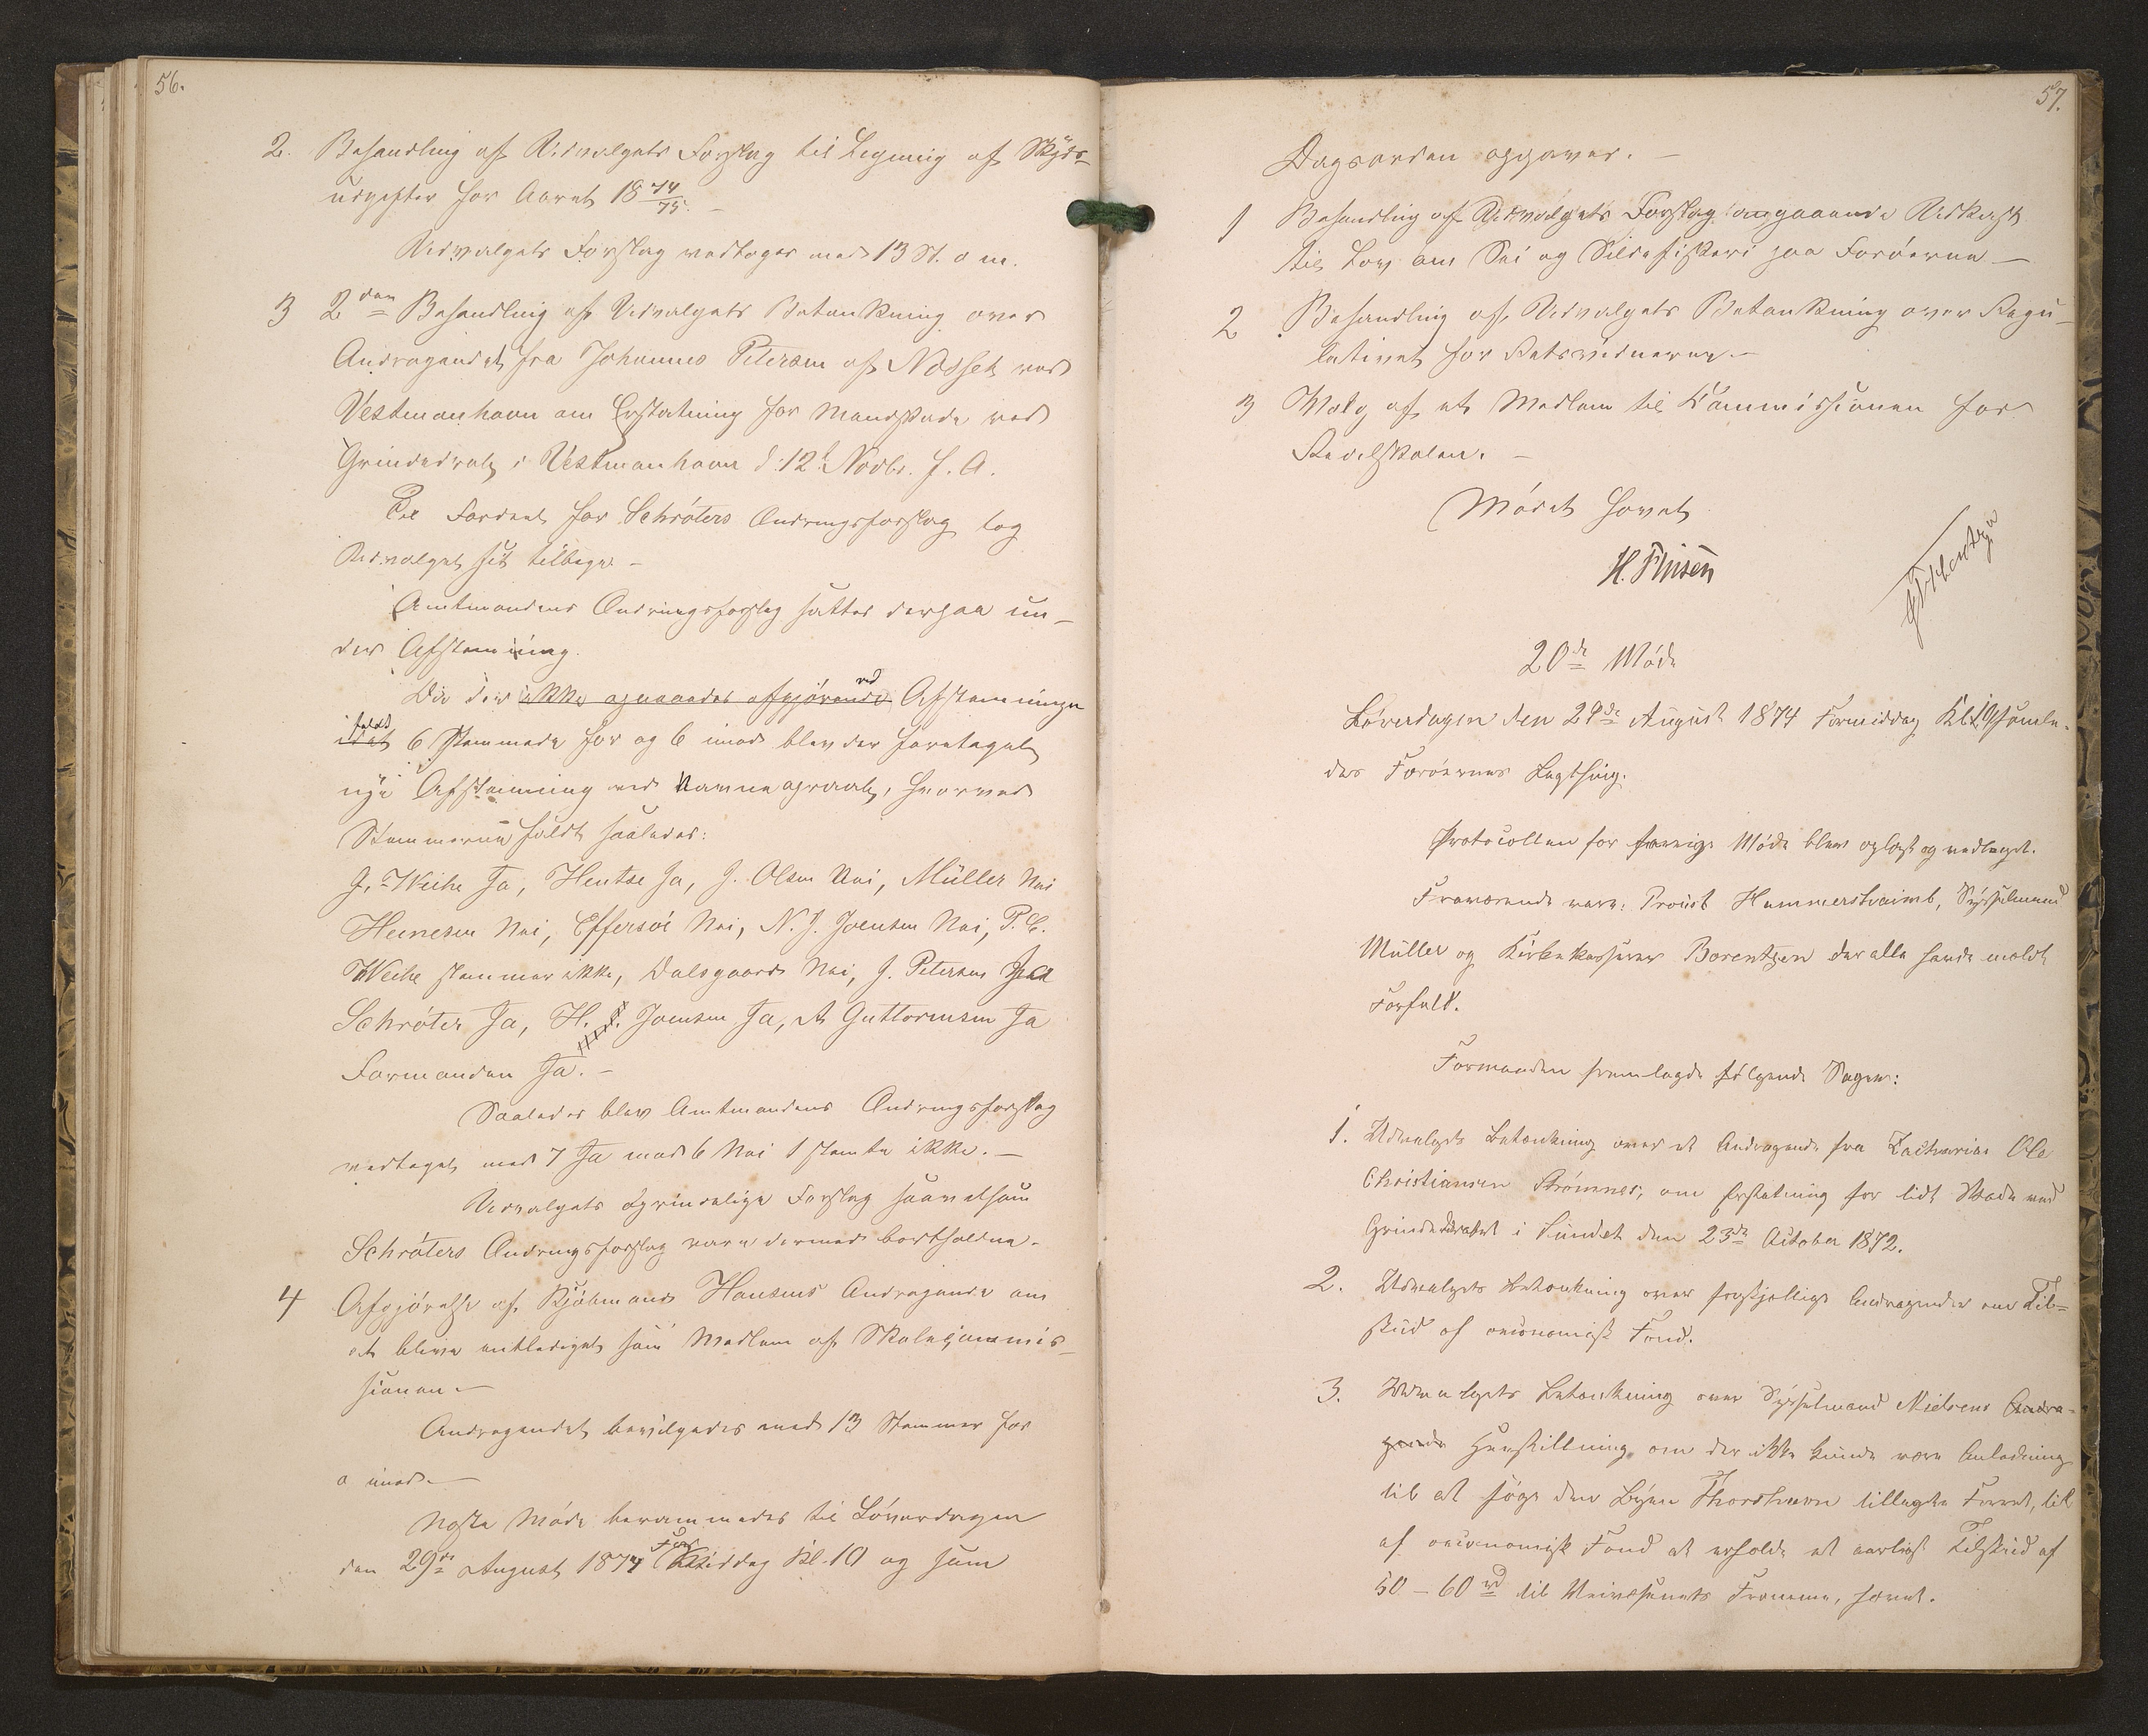 56.
2. Behandling af Udvalgets Forslag til Ligning af Skyds-
udgifter for Aaret 18 74/75. –
Udvalgets Forslag vedtoges med 13 St. o m.
3 2den Behandling af Udvalgets Betænkning over
Andragendet fra Johannes Petersen af Nesset ved
Vestmanhavn om Erstatning for Mandskade ved
Grindedrab i Vestmanhavn d: 12t Novbr. f. A.
Til Fordeel for Schröters Ændringsforslag tog
Udvalget sit tilbage –
Amtmandens Ændringsforslag sattes derpaa un-
der Afstemning.
Da der ikke opnaaedes afgjörende ved Afstemningen
idet faldt 6 Stemmede for og 6 imod blev der foretaget
nye Afstemning ved Navneopraab, hvorved
Stemmerne faldt saaledes:
J. Weihe Ja, Hentze Ja, J. Olsen Nei, Müller Nei
Heinesen Nei, Effersöe Nei, N. J. Joensen Nei, P. C.
Weihe stemmer ikke, Dalsgaard Nei, J. Petersen Ja
Schröter Ja, H. Joensen Ja, A Guttormsen Ja
Formanden Ja. –
Saaledes blev Amtmandens Ændringsforslag
vedtaget med 7 Ja mod 6 Nei 1 stemte ikke. –
Udvalgets oprindelige Forslag saavelsom
Schröters Ændringsforslag vare dermed bortfaldne.
4 Afgjörelse af Kjöbmand Hansens Andragende om
at blive entlediget som Medlem af Skolecommis-
sionen –
Andragendet bevilgedes med 13 Stemmer for
o imod. –
Næste Möde berammedes til Löverdagen
den 29de August 1874 Formiddag Kl. 10 og som
57.
Dagsorden opgaves. –
1 Behandling af Udvalgets Forslag angaaende Udkast
til Lov om Sei og Sildefiskeri paa Færöerne –
2 Behandling af Udvalgets Betænkning over Regu-
lativet for Retsvidnerne. –
3 Valg af et Medlem til Kommissionen for
Realskolen. –
Mödet hævet
H. Finsen
20de Möde
Löverdagen den 29de August 1874 Formiddag Kl. 10 samle-
des Færöernes Lagthing.
Protocollen for forrige Möde blev oplæst og vedtaget.
Fraværende vare: Provst Hammershaimb, Sysselmand
Müller og Kirkekasserer Berentzen der alle havde meldt
Forfald.
Formanden fremlagde fölgende Sager:
1. Udvalgets Betænkning over et Andragende fra Zacharias Ole
Christiansen Strömnes, om Erstatning for lidt Skade ved
Grindedrabet i Sundet den 23de October 1872.
2. Udvalgets Betænkning over forskjellige Andragender om Til-
skud af oeconomisk Fond.
3. Udvalgets Betænkning over Sysselmand Nielsens Andra-
gende Henstilling, om der ikke kunde være Anledning
til at söge den Byen Thorshavn tillagte Første, til
af oeconomisk Fond at erholde et aarligt Tilskud af
50 – 60 rd til Veivæsenets Fremme, hævet.